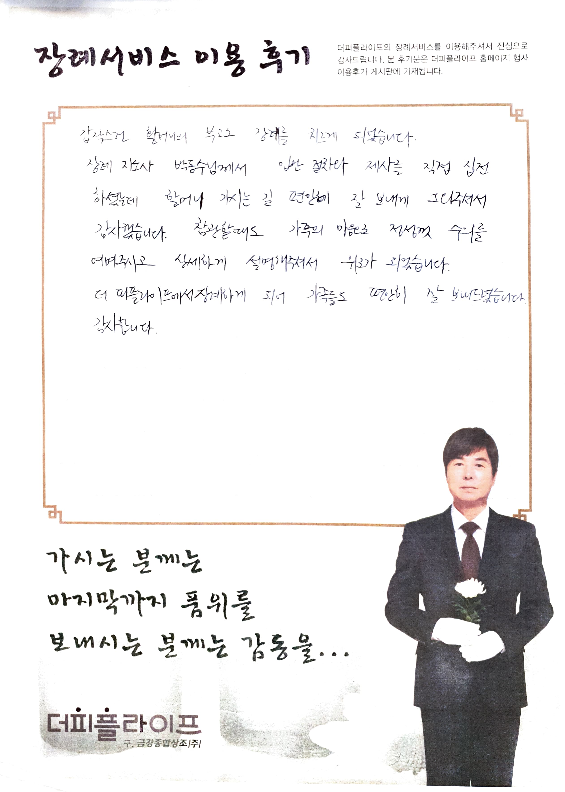 장례서비스 이용 후기
더피플라이프의 장례서비스를 이용해주셔서 진심으로
감사드립니다. 본 후기문은 더피플라이프 홈페이지 행사
이용후기 게시판에 기재됩니다.
갑작스런 할머니의 부고로 장례를 치르게 되었습니다.
장례 지도사 박동수님께서 입관 절차나 제사를 직접 집전
하셨는데 할머니 가시는 길 편안히 잘 보내게 도와주셔서
감사했습니다. 참관할때도 가족의 마음으로 정성껏 수의를
여며주시고 상세하게 설명해주셔서 위로가 되었습니다.
더 피플라이프에서 장례하게 되어 가족들도 편안히 잘 보내드렸습니다
감사합니다.
가시는 분께는
마지막까지 품위를
보내시는 분께는 감동을...
더피플라이프
구. 금강종합상조(주)